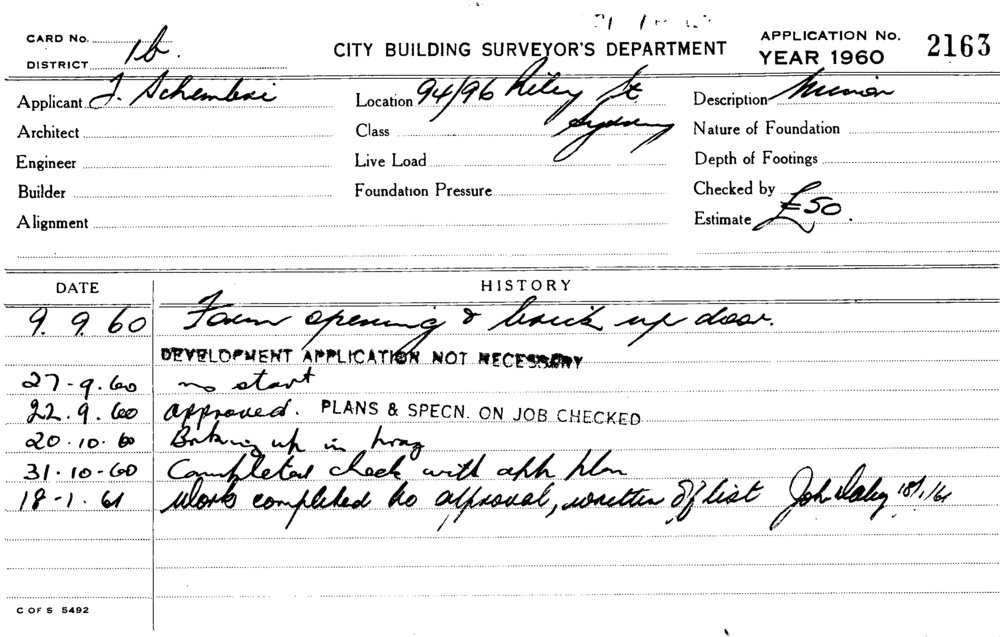 CARD No.
DISTRICT 1b.
CITY BUILDING SURVEYOR'S DEPARTMENT
APPLICATION No. 2163
YEAR 1960
Applicant J. Schembri
Location 94/96 Riley St
Sydney
Description Minor
Architect
Class
Nature of Foundation
Engineer
Live Load
Depth of Footings
Builder
Foundation Pressure
Checked by
Alignment
Estimate £50.
DATE HISTORY
9.9.60 Form opening & brick up door.
DEVELOPMENT APPLICATION NOT NECESSARY
27-9.60 no start
22.9.60 approved. PLANS & SPECN. ON JOB CHECKED
20.10.60 up in prog
31-10-60 Completed check with app plan
18-1.61 Work completed to approval, written off list John 18/1/61
C OF S 5492